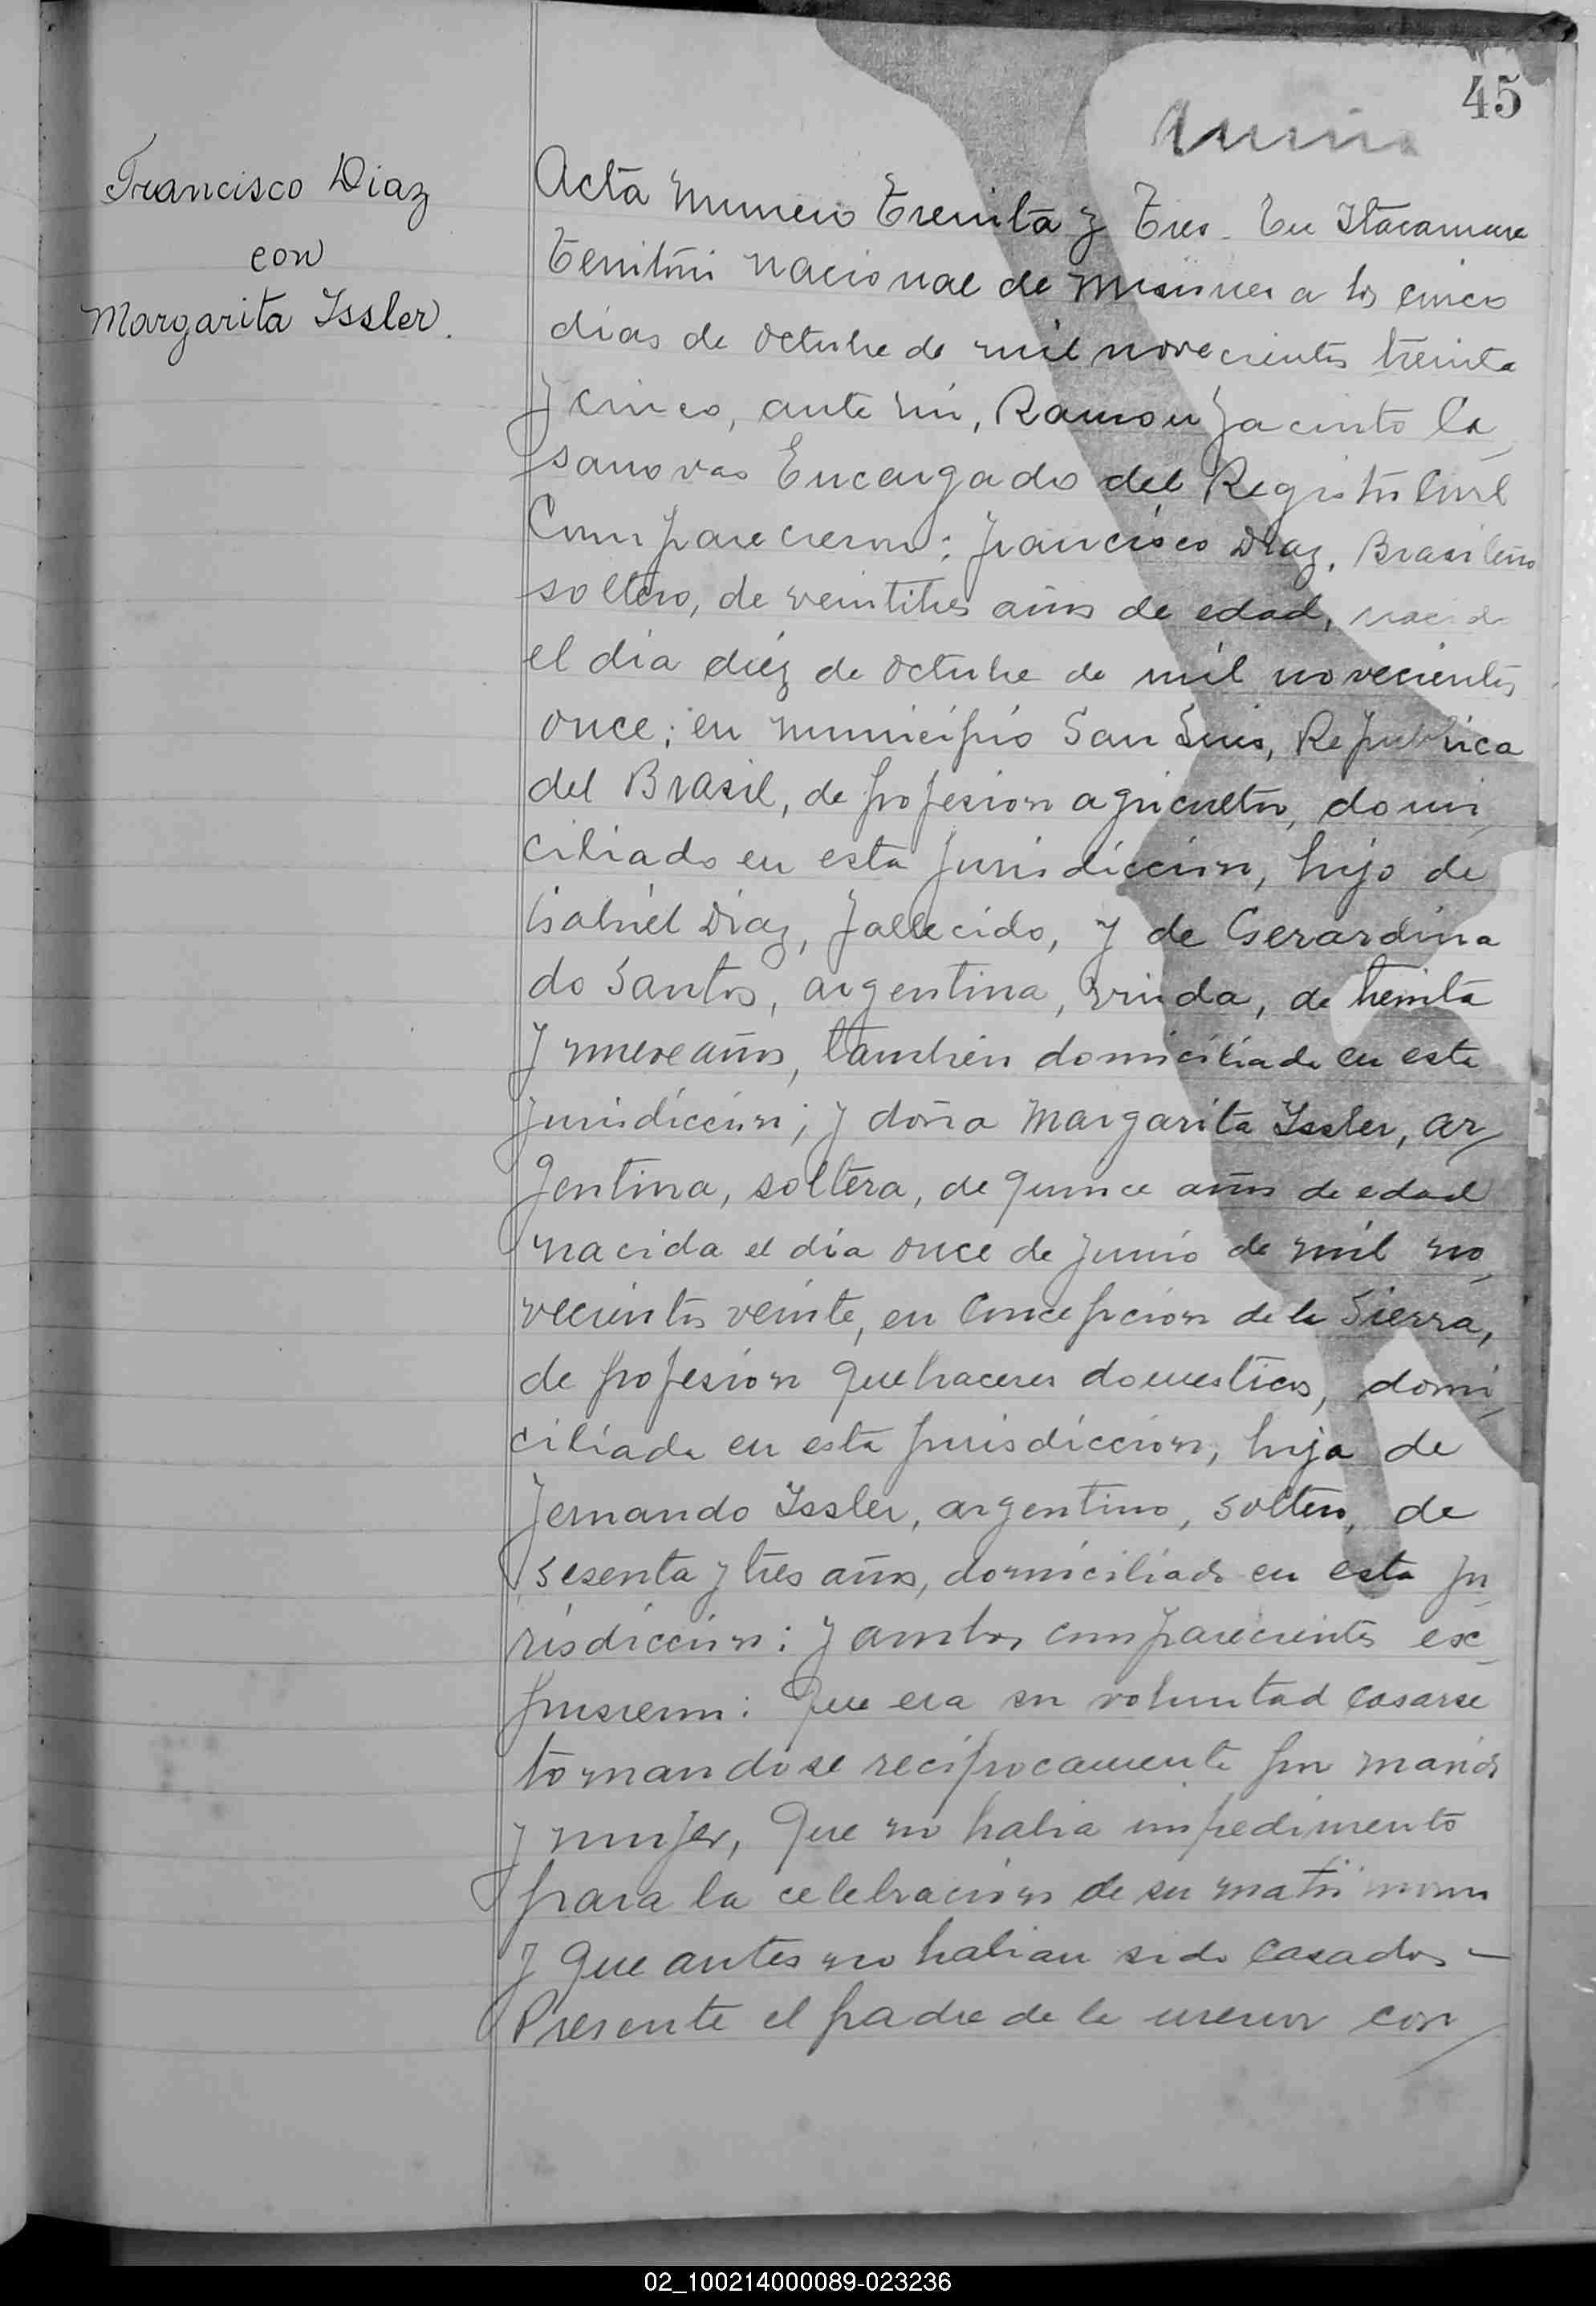 45
Francisco Diaz
con
Margarita Issler.
Acta Numero Treinta y Tres. En Itacaruare
Territorio nacional de Misiones a los cinco
dias de Octubre de mil novecientos treinta
y cinco, ante mi, Ramon Jacinto Ca
sanovas Encargado del Registro Civil
Comparecieron: Francisco Diaz, Brasileño
soltero, de veintitres años de edad, nacido
el dia diez de Octubre de mil novecientos
once; en municipio San Luis, Republica
del Brasil, de profesion agricultor, domi
ciliado en esta jurisdiccion, hijo de
Gabriel Diaz, fallecido, y de Gerardina
do Santos, argentina, viuda, de treinta
y nueve años, tambien domiciliada en esta
jurisdiccion; y doña Margarita Issler, ar
gentina, soltera, de quince años de edad
nacida el dia once de Junio de mil no
vecientos veinte, en Concepcion de la Sierra,
de profesion quehaceres domesticos, domi
ciliada en esta jurisdiccion, hija de
Fernando Issler, argentino, soltero, de
sesenta y tres años, domiciliado en esta ju
risdiccion: y ambos comparecientes ex
pusieron: Que era su voluntad casarse
tomandose reciprocamente por marido
y mujer, Que no habia impedimento
para la celebracion de su matrimonio
y Que antes no habian sido casados —
Presente el padre de la menor con
02_100214000089-023236